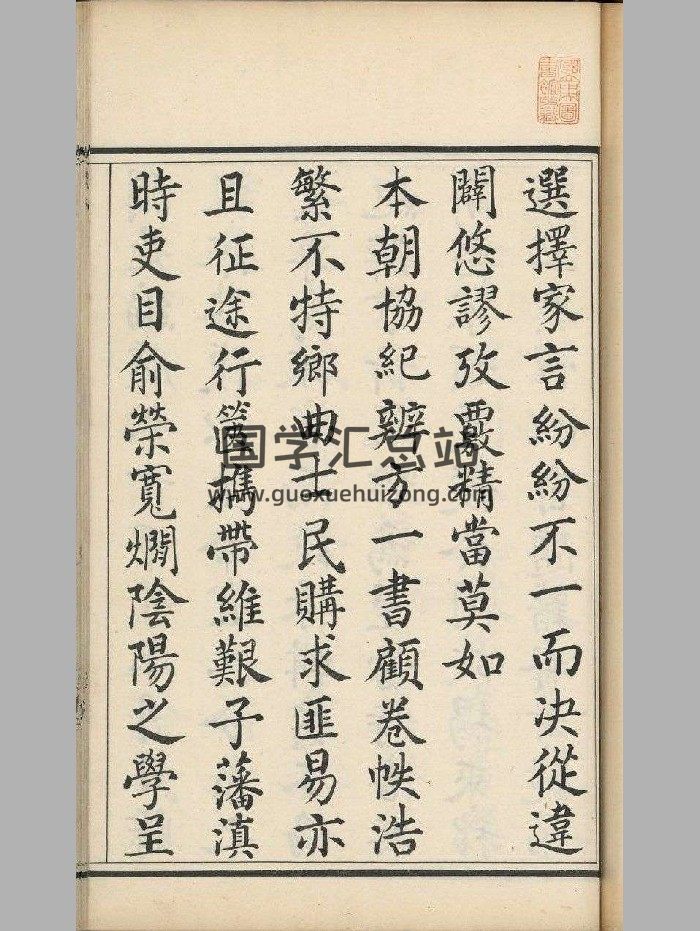 選擇家言紛紛不一而决從違
闢悠謬攷覈精當莫如
本朝協紀辨方一書顧卷帙浩
繁不特鄉曲士民購求匪易亦
且征途行篋攜帶維艱予藩滇
時吏目俞榮寬爛陰陽之學呈
国学汇总站
www.guoxuehuizong.com